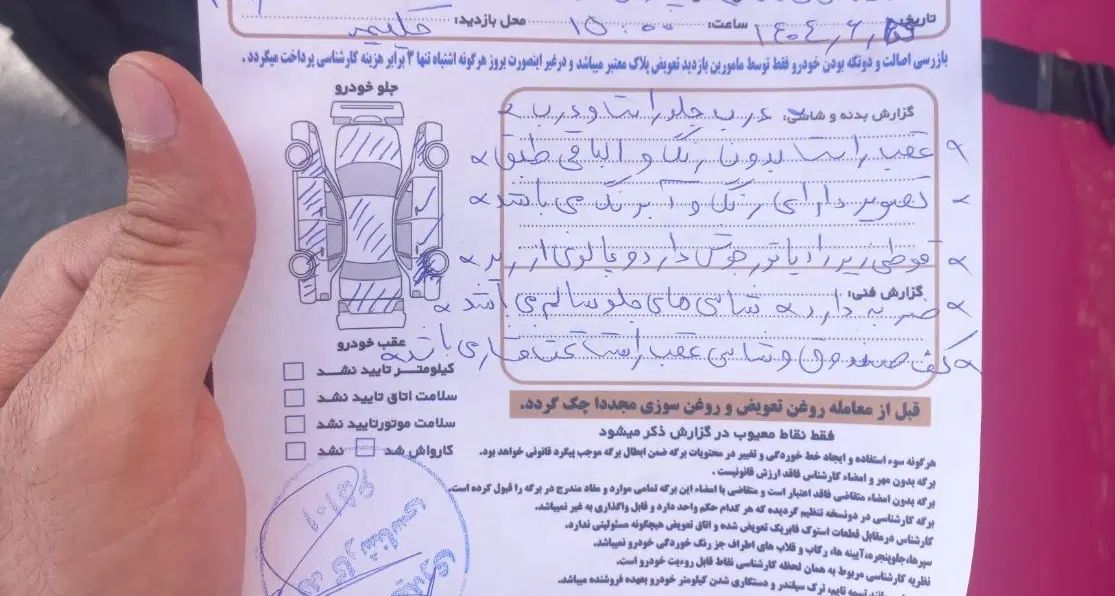 تاریخ: ۱۴۰۴,۶,۲۵ ساعت: ۱۵:۰۰ محل بازدید: حکیمیه
بازرسی اصالت و دوتکه بودن خودرو فقط توسط مامورین بازدید تعویض پلاک معتبر میباشد و درغیر اینصورت بروز هرگونه اشتباه تنها ۳ برابر هزینه کارشناسی پرداخت میگردد.
جلو خودرو
گزارش بدنه و شاسی: درب جلو راست و درب
عقب راست بدون رنگ و الباقی طبق
تصویر دارای رنگ و آبرنگ می باشد
قوطی زیر رادیاتور جوش دارد و پالونی از زیر
گزارش فنی:
ضربه دارد شاسی های جلو سالم می باشد
کف صندوق و شاسی عقب راست تحت فشار می باشد
عقب خودرو
کیلومتر تایید نشد
سلامت اتاق تایید نشد
سلامت موتور تایید نشد
کارواش شد نشد
قبل از معامله روغن تعویض و روغن سوزی مجددا چک گردد.
فقط نقاط معیوب در گزارش ذکر میشود
هرگونه سوء استفاده و ایجاد خط خوردگی و تغییر در محتویات برگه ضمن ابطال برگه موجب پیگرد قانونی خواهد بود.
برگه بدون مهر و امضاء کارشناس فاقد ارزش قانونیست.
برگه بدون امضاء متقاضی فاقد اعتبار است و متقاضی با امضاء این برگه تمامی موارد و مفاد مندرج در برگه را قبول کرده است.
برگه کارشناسی در دونسخه تنظیم گردیده که هر کدام حکم واحد دارد و قابل واگذاری به غیر نمیباشد.
کارشناس در مقابل قطعات استوک فابریک تعویض شده و اتاق تعویض هیچگونه مسئولیتی ندارد.
سپرها، جلوپنجره، آیینه ها، رکاب و قلاب های اطراف جز رنگ خوردگی خودرو نمیباشد.
نظریه کارشناسی مربوط به همان لحظه کارشناسی نقاط قابل رویت خودرو است.
تسمه تایم، ترک سیلندر و دستکاری شدن کیلومتر خودرو بعهده فروشنده میباشد.